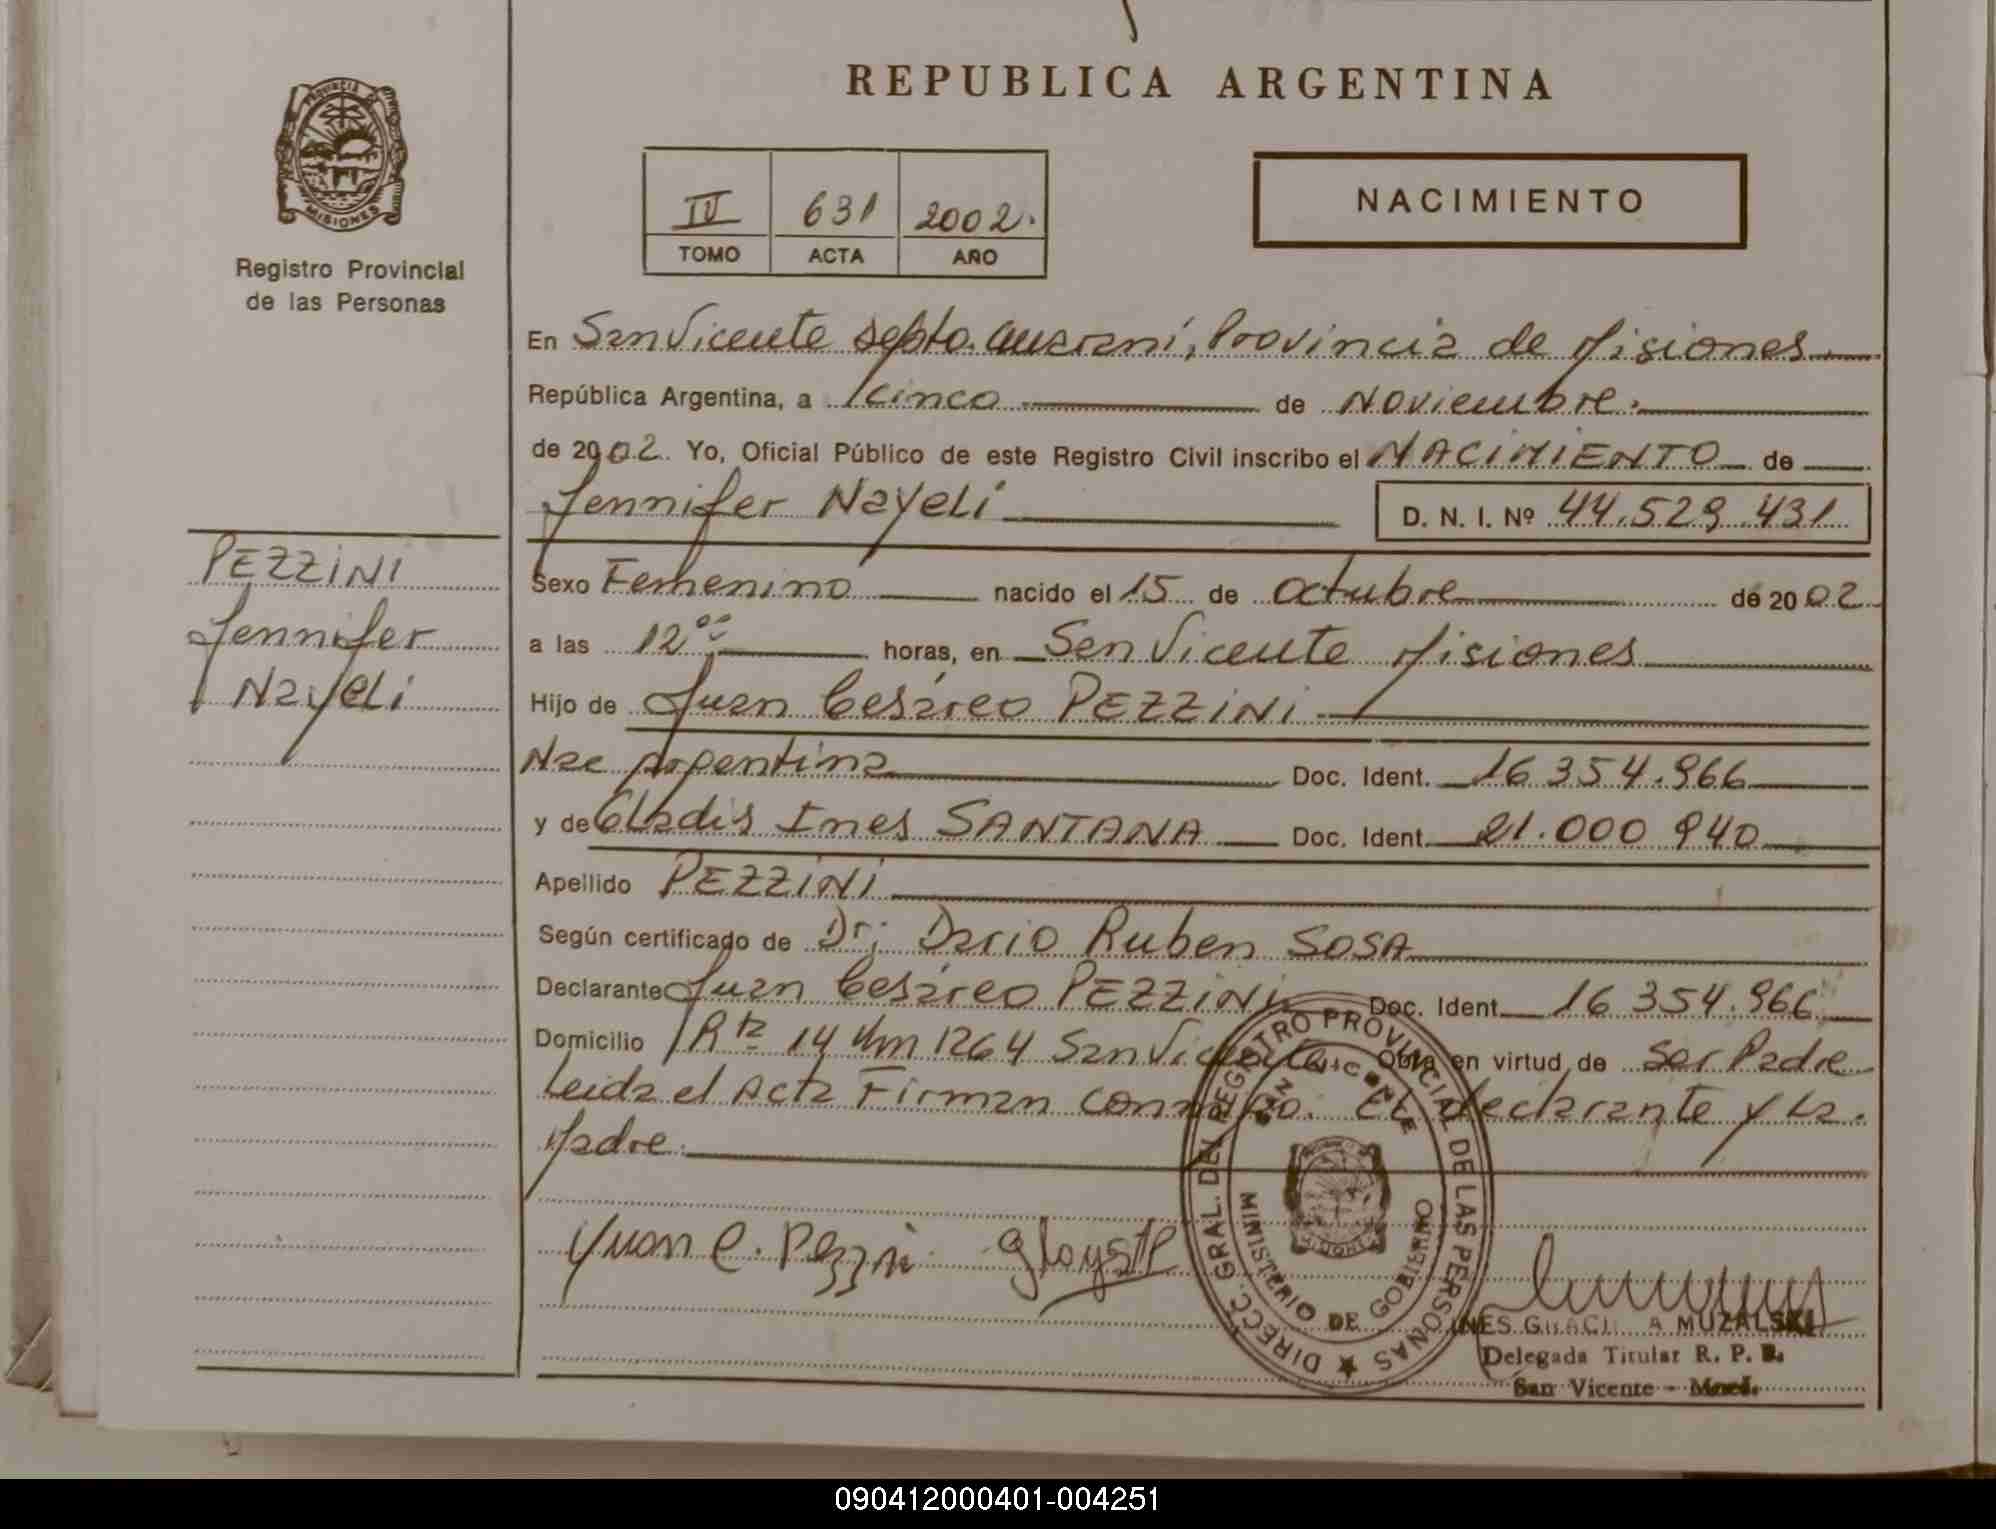 REPUBLICA ARGENTINA
PROVINCIA DE
MISIONES
Registro Provincial
de las Personas
IV 631 2002.
TOMO ACTA AÑO
NACIMIENTO
En San Vicente Depto. Guaraní, Provincia de Misiones
República Argentina, a Cinco de Noviembre.
de 2002. Yo, Oficial Público de este Registro Civil inscribo el NACIMIENTO de
Jennifer Nayeli D. N. I. Nº 44.529.431
PEZZINI
Jennifer
Nayeli
Sexo Femenino nacido el 15 de Octubre de 2002
a las 12 00 horas, en San Vicente Misiones
Hijo de Juan Cesáreo PEZZINI
Nac Argentina Doc. Ident. 16 354.966
y de Gladis Ines SANTANA Doc. Ident. 21.000 940
Apellido PEZZINI
Según certificado de Dr; Dario Ruben SOSA
Declarante Juan Cesáreo PEZZINI Doc. Ident. 16 354.966
Domicilio Rta 14 Km 1264 San Vicente Obra en virtud de Ser Padre
Leida el Acta Firman conmigo. EL declarante y La.
Madre.
Juan C. Pezzini
DIRECC. GRAL. DEL REGISTRO PROVINCIAL DE LAS PERSONAS
SAN VICENTE
MISIONES
MINISTERIO DE GOBIERNO
INES GRACIELA MUZALSKI
Delegada Titular R. P. P.
San Vicente - Mnes.
090412000401-004251